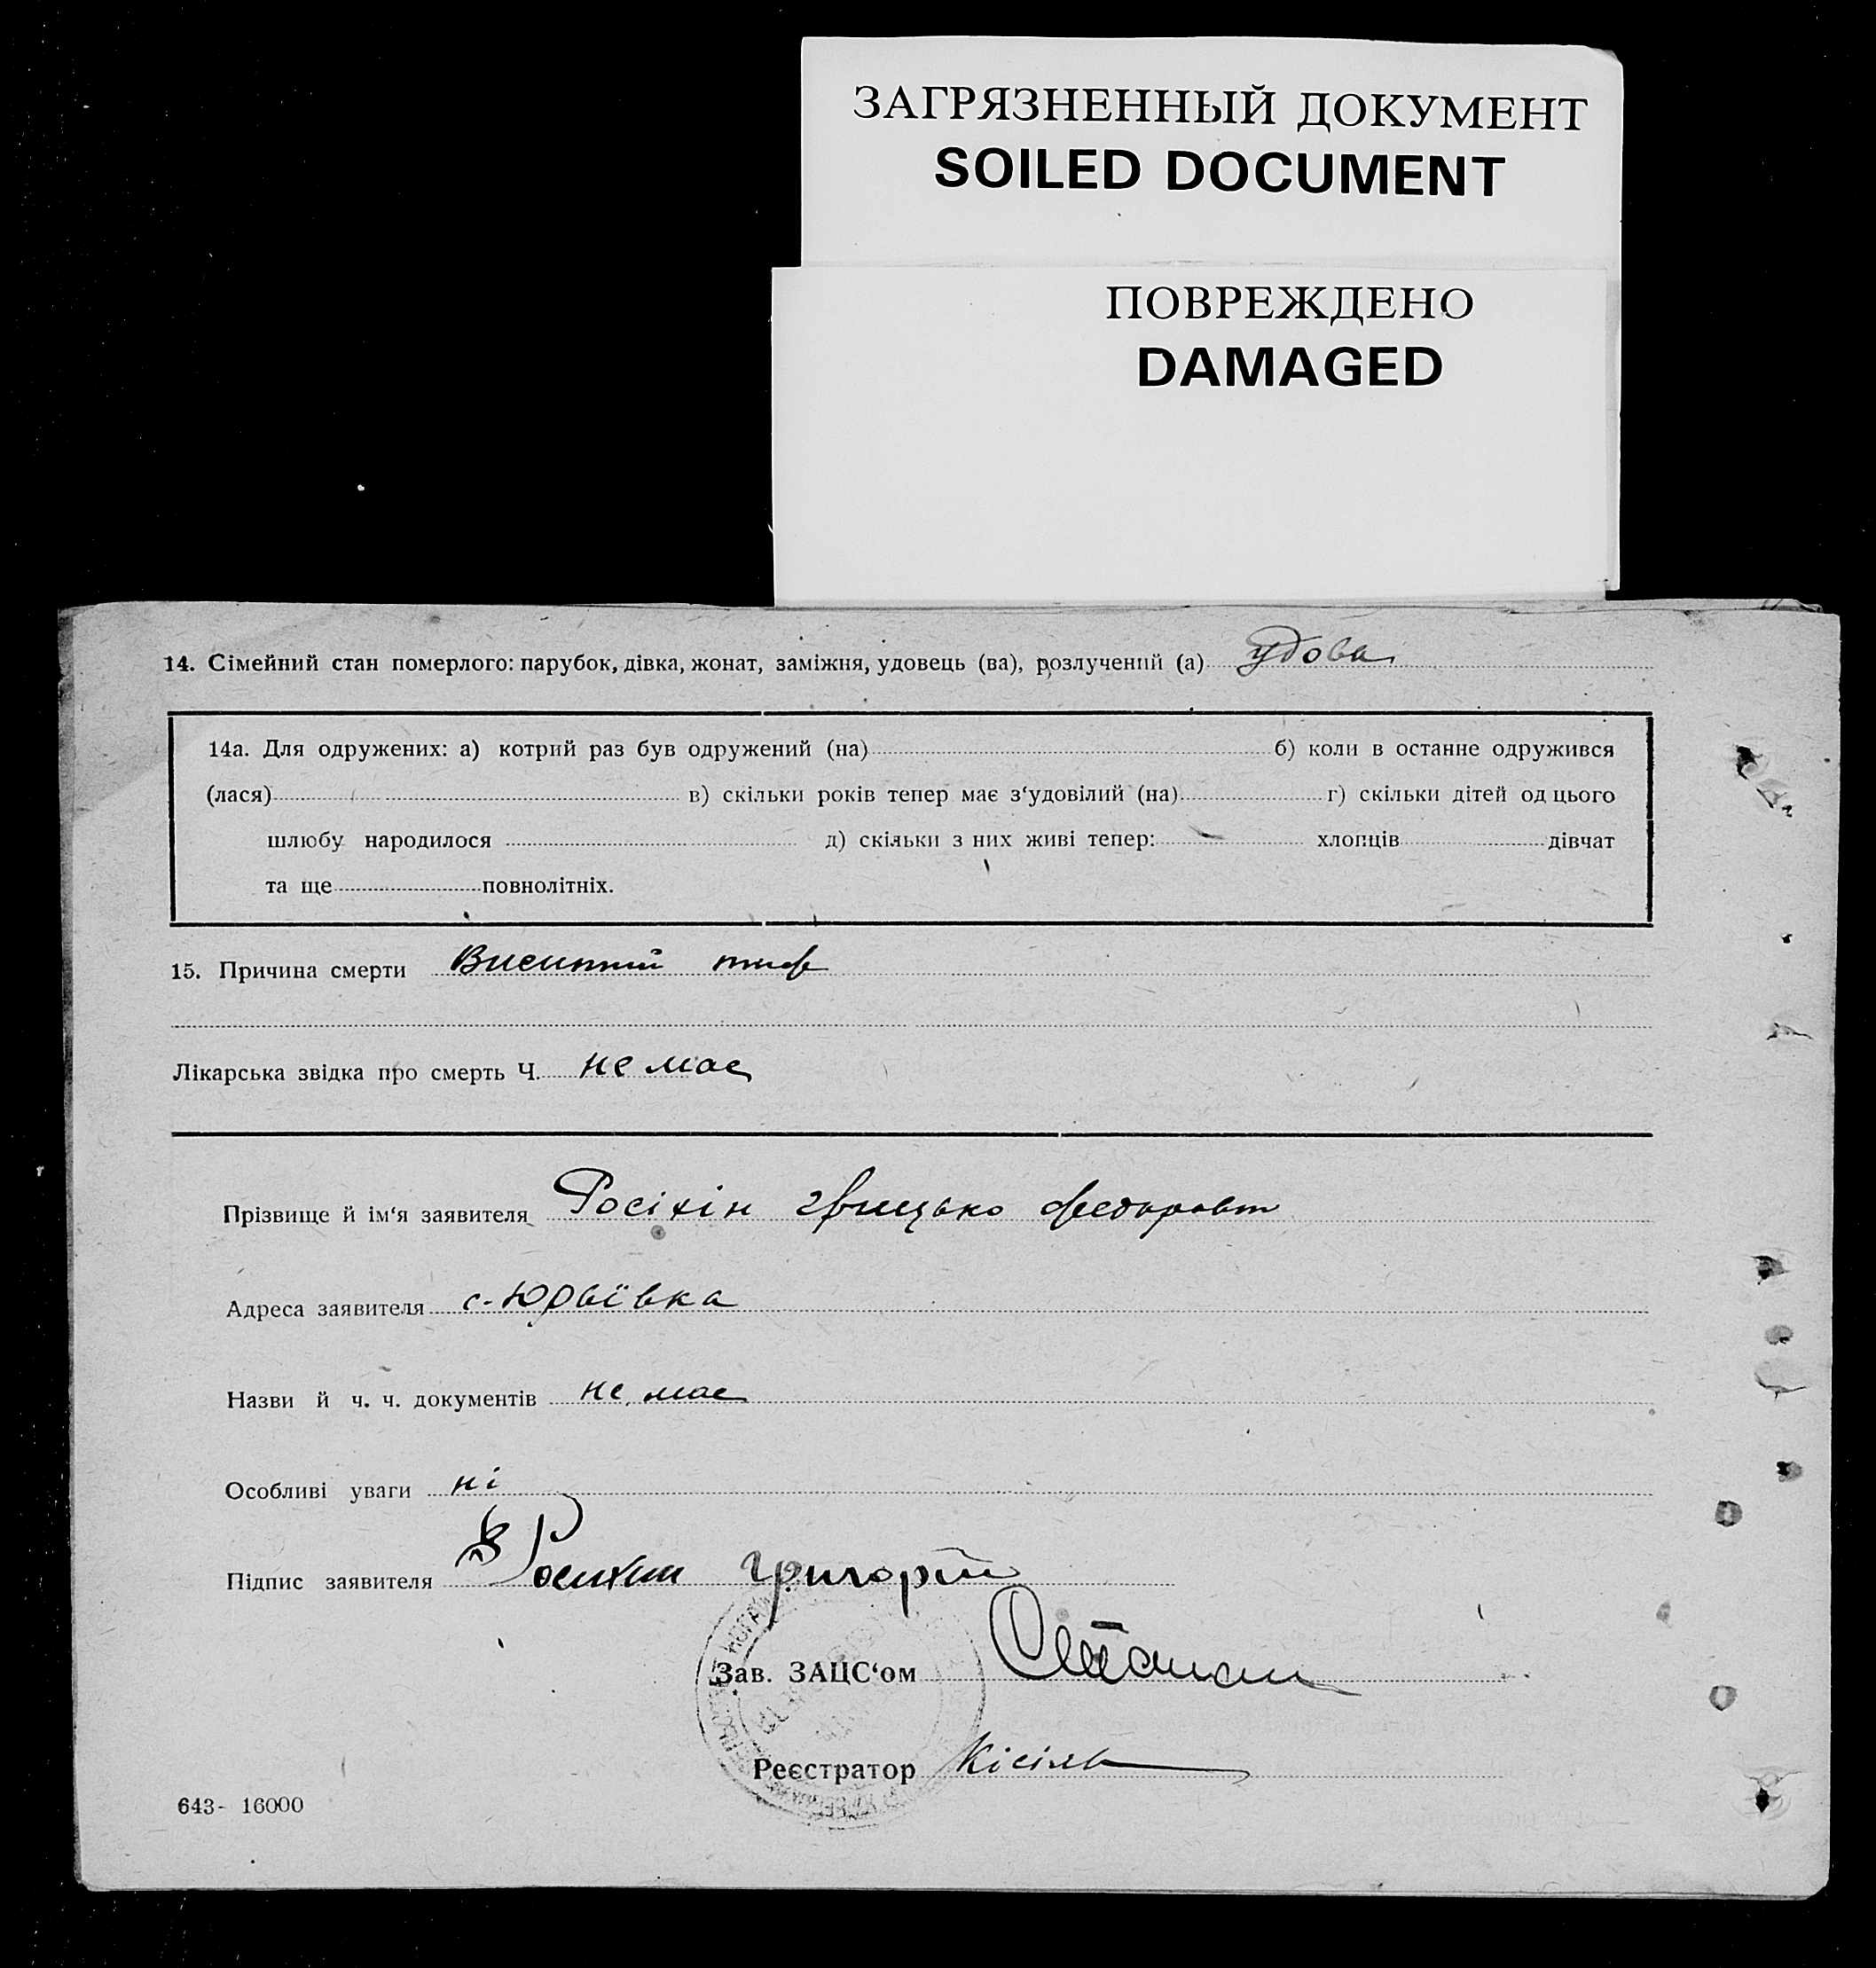 ЗАГРЯЗНЕННЫЙ ДОКУМЕНТ
SOILED DOCUMENT
ПОВРЕЖДЕНО
DAMAGED
14. Сімейний стан померлого: парубок, дівка, жонат, заміжня, удовець (ва), розлучений (а) удова
14а. Для одружених: а) котрий раз був одружений (на) б) коли в останнє одружився
(лася) в) скільки років тепер має з‘удовілий (на) г) скільки дітей од цього
шлюбу народилося д) скільки з них живі тепер: хлопців дівчат
та ще повнолітніх.
15. Причина смерти Висипний тиф
Лікарська звідка про смерть Ч. не має
Прізвище й ім‘я заявителя Росіхін Грицько Федоровт
Адреса заявителя с-Юрьївка
Назви й ч. ч. документів не має
Особливі уваги ні
Підпис заявителя Росихин Григорій
Зав. ЗАЦС‘ом
Реєстратор Кісіль
643- 16000